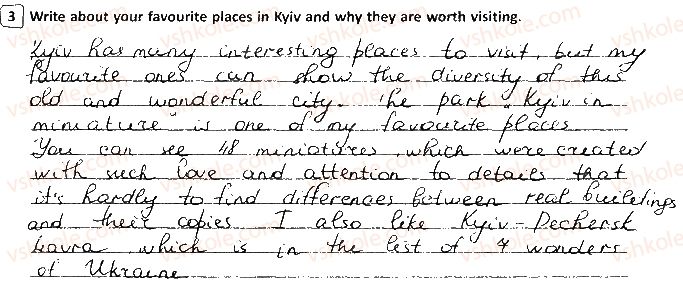 3 Write about your favourite places in Kyiv and why they are worth visiting.
Kyiv has many interesting places to visit, but my
favourite ones can show the diversity of this
old and wonderful city. The park "Kyiv in
miniature" is one of my favourite places
You can see 48 miniatures, which were created
with such love and attention to details that
it's hardly to find differences between real buildings
and their copies. I also like Kyiv-Pechersk
Lavra, which is in the list of 7 wonders
of Ukraine